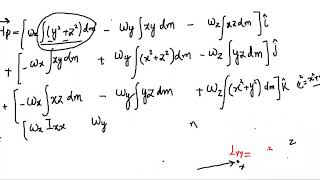 Hp = [ωx ∫(y²+z²)dm - ωy ∫xy dm - ωz ∫xz dm] î
+ [-ωx ∫xy dm + ωy ∫(x²+z²)dm - ωz ∫yz dm] ĵ
+ [-ωx ∫xz dm - ωy ∫yz dm + ωz ∫(x²+y²)dm] k̂
[ωx Ixx ωy n
Iyy =
z
x